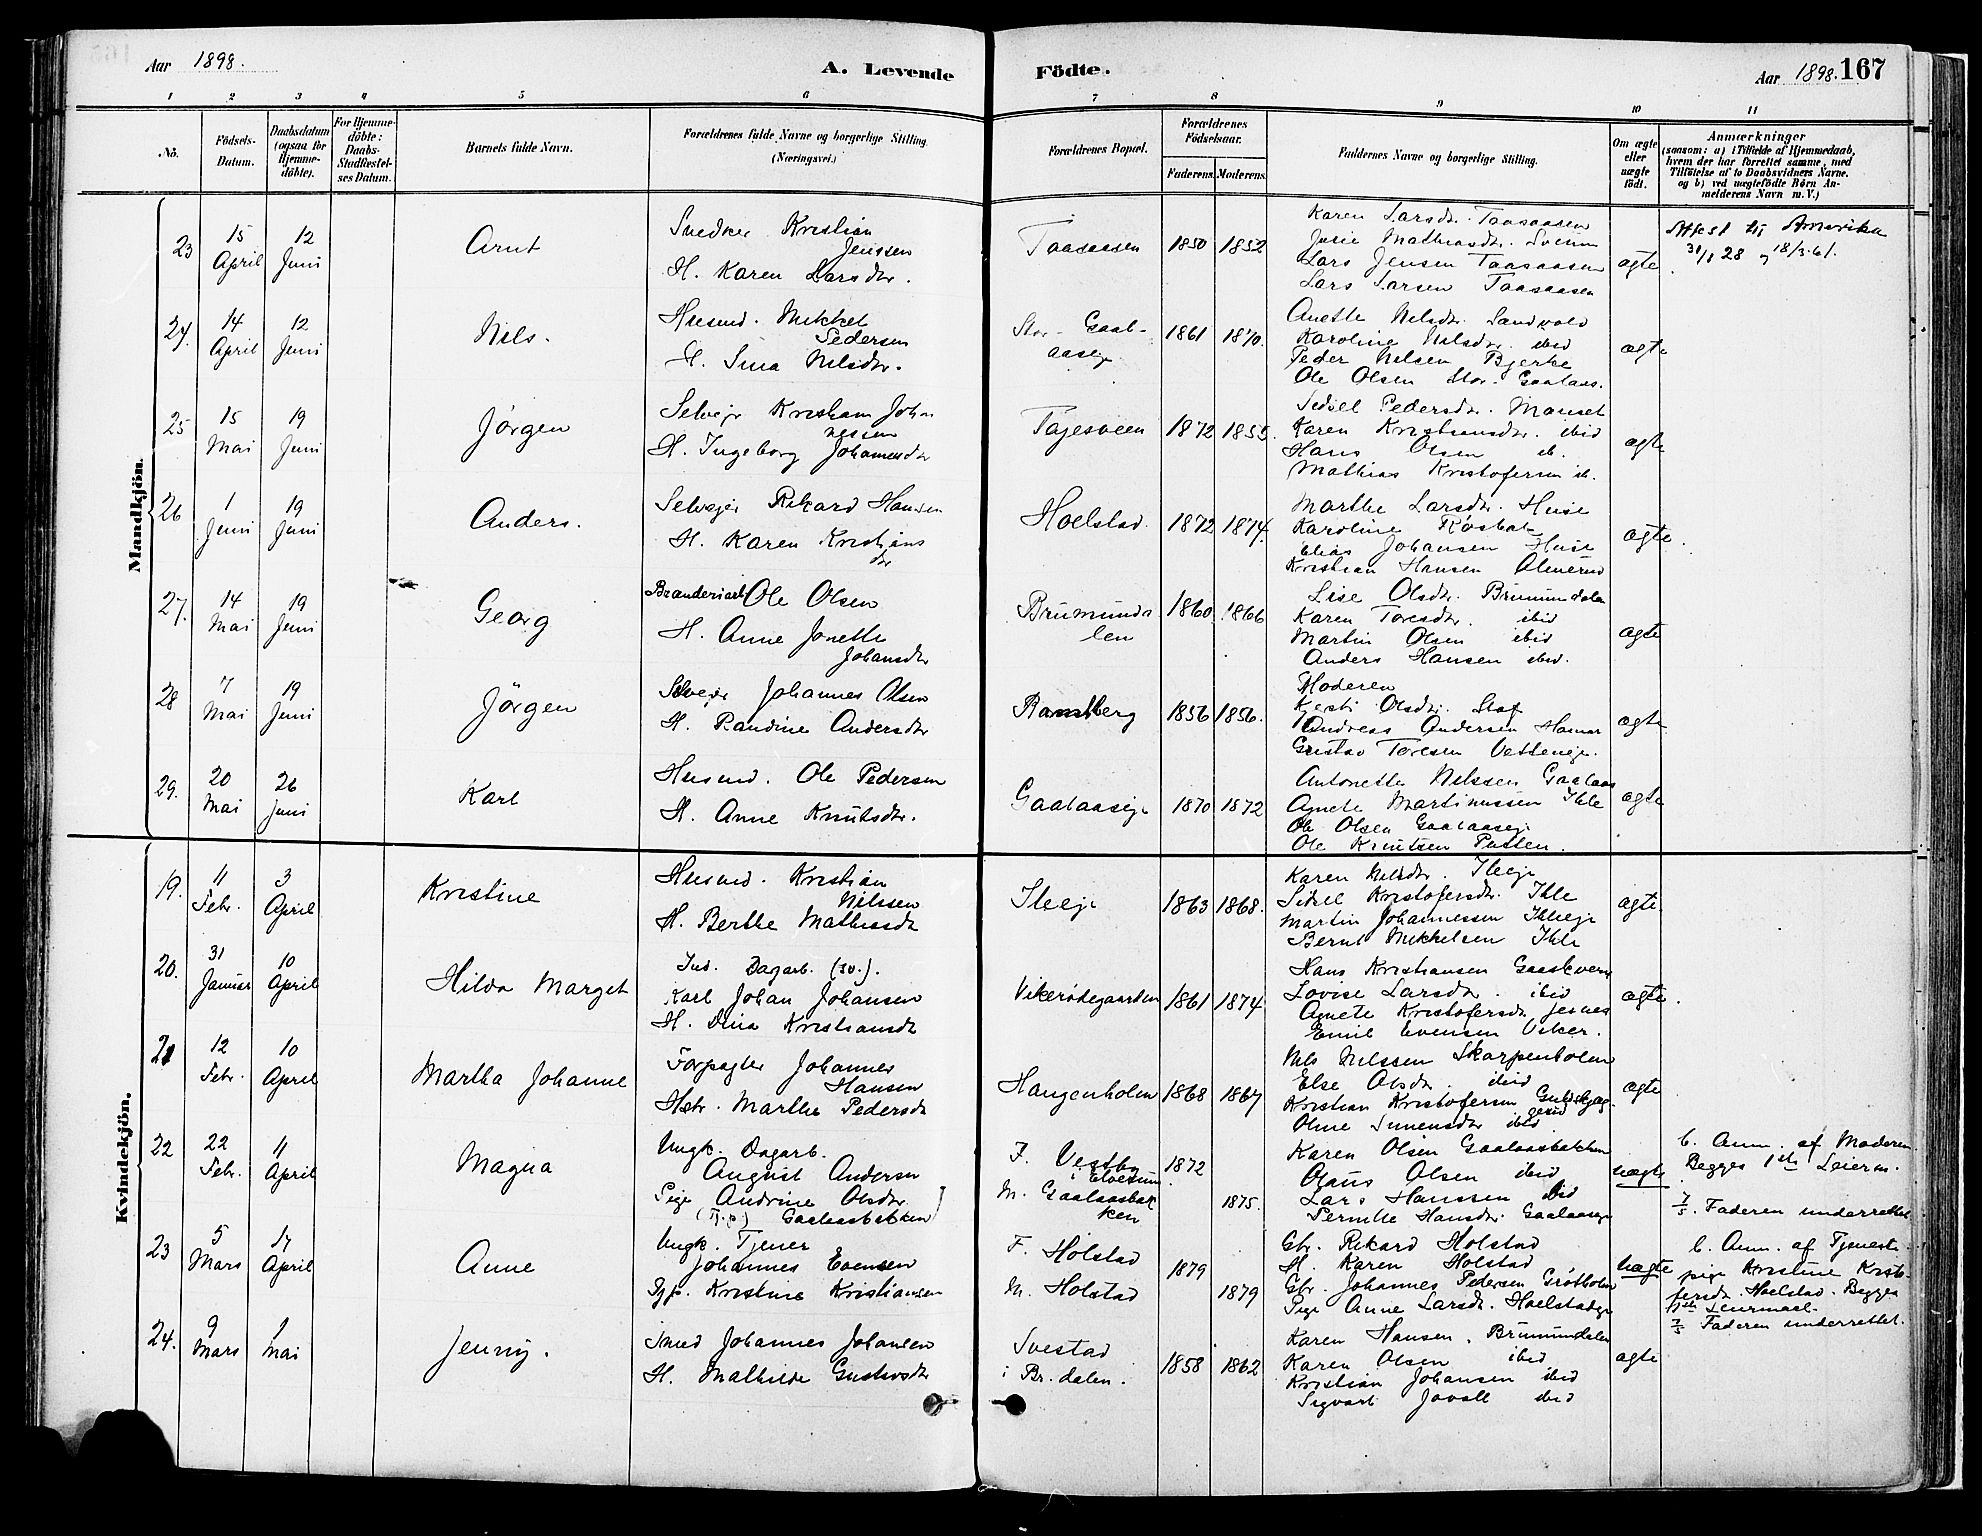 Aar 1898.
A. Levende Födte.
Aar 1898. 167
1 2 3 4 5 6 7 8 9 10 11
No.
Födsels-Datum.
Daabsdatum (ogsaa for Hjemmedöbte).
For Hjemmedöbte: Daabs-Stadfestelses Datum.
Barnets fulde Navn.
Forældrenes fulde Navne og borgerlige Stilling (Næringsvei.)
Forældrenes Bopæl.
Forældrenes Födselsaar.
Faderens. Moderens.
Faddernes Navne og borgerlige Stilling.
Om ægte eller uægte födt.
Anmærkninger
(saasom: a) i Tilfælde af Hjemmedaab,
hvem der har forrettet samme, med
Tilföielse af to Daabsvidners Navne.
og b) ved uægtefödte Börn An-
melderens Navn m.V.)
Mandkjön.
23 15 April 12 Juni
Arnt
Snedker Kristian
Jenssen
H. Karen Larsdtr.
Taasaasen
1850 1852
Karen Larsdtr. Taasaasen
Josie Mathiasdtr. Sveum
Lars Jensen Taasaasen
Lars Larsen Taasaasen
ægte
Attest til Amerika
31/1 28 og 18/3-61.
24. 14 April 12 Juni
Nils.
Husmd. Mikkel
Pedersen
H. Sina Nilsdtr.
Stor-Gaal-
aaseje
1861 1870.
Anette Nilsdtr. Sandvold
Karoline Nilsdtr. ibid
Peder Nilsen Bjerke
Ole Olsen Stor-Gaalaas.
ægte
25 15 Mai 19 Juni
Jörgen
Selvejr Kristian Johan
nessen
H. Ingeborg Johannesdtr
Tajesveen
1872 1855.
Sidsel Pedersdtr. Mauset
Karen Kristiansdtr. ibid
Hans Olsen ib.
Mathias Kristofersen ib.
ægte
26 1 Juni 19 Juni
Anders.
Selvejer Rikard Hansen
H. Karen Kristians
dtr
Hoelstad.
1872 1874.
Marthe Larsdtr. Huse
Karoline
Elias Johansen Huse
Kristian Hansen Olmerud
ægte.
27. 14 Mai 19 Juni
Georg
Brænderiarb Ole Olsen
H. Anne Jonette
Johansdtr
Brumunda
len
1860 1866
Lise Olsdtr. Brumundalen
Karen Toresdtr. ibid
Martin Olsen ibid
Anders Hansen ibid.
ægte
28 7 Mai 19 Juni
Jörgen
Selvejer Johannes Olsen
H. Randine Andersdtr
Ramsberg
1856 1856.
Moderen
Kjersti Olsdtr. Stof
Andreas Andersen Hamar
Gustav Toresen Velteneje.
ægte
29. 20 Mai 26 Juni
Karl
Husmd. Ole Pedersen
H. Anne Knutsdtr.
Gaalaaseje
1870 1872
Antonette Nilssen Gaalaas
Agnete Martinussen Ihle
Ole Olsen Gaalaaseje
Ole Knutsen Pusten.
ægte
Kvindekjön.
19. 11 Febr. 3 April
Kristine
Husmd. Kristian
Nilssen
H. Berthe Mathiasdtr
Ileeje
1863 1868.
Karen Nilsdtr. Ileeje
Sidsel Kristofersdtr. Ihle
Martin Johannessen Ihleeje
Bernt Mikkelsen Ihle
ægte.
20. 31 Januar 10 April
Hilda Marget
Ind. Dagarb. (sv.).
Karl Johan Johansen
H. Dina Kristiansdtr
Vikerødegaarden
1861 1874
Hans Kristiansen Gaaskvern
Lovise Larsdtr. ibid
Agnete Kristofersdtr Jesnes
Emil Evensen Viker.
ægte.
21 12 Febr. 10 April
Martha Johanne
Forpagter Johannes
Hansen
Hstr. Marthe Pedersdtr
Hangenholm
1868 1867
Nils Nilssen Skarpenholen
Else Olsdtr. ibid
Kristian Kristofersen
Oline Simensdtr ibid
ægte
22 22 Febr. 11 April
Magna
Ungk. Dagarb.
August Andersen
Pige Andrine Olsdtr.
(Tj.p.) Gaalaasbakken
F. Vestby
i Elverum
M. Gaalaasbak
ken
1872
1875.
Karen Olsen Gaalaasbakken
Olaus Olsen ibid
Lars Hanssen ibid
Pernille Hansdtr. Gaalaaseje
uægte
b. Anm. af Moderen
Begges 1ste Leierm.
7/5. Faderen underrettet
23 5 Mars 17 April
Anne
Ungk. Tjener
Johannes Evensen
Pige. Kristine Kristiansen
F. Holstad
M. Holstad
1879
1879
Gbr. Rikard Holstad
H. Karen Holstad
Gbr. Johannes Pedersen Grötholm
Pige Anne Larsdtr. Hoelstadeje
uægte
b. Anm. af Tjeneste-
pige Kristine Kristo-
fersdtr. Hoelstad. Begges
1ste Leiermaal.
7/5 Faderen underrettet.
24. 9 Mars 1 Mai
Jenny.
Smed Johannes Johansen
H. Mathilde Gustavsdtr
Svestad
i Br. dalen.
1858 1862
Karen Hansen. Brumundalen
Karen Olsen ibid
Kristian Johansen ibid
Sigvart Javall ibid
ægte